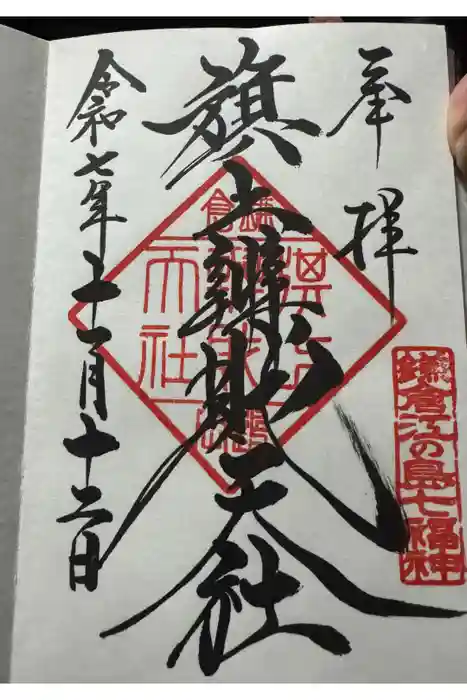 奉拝
鎌倉江の島七福神
旗上辨財天社
令和七年十一月十二日